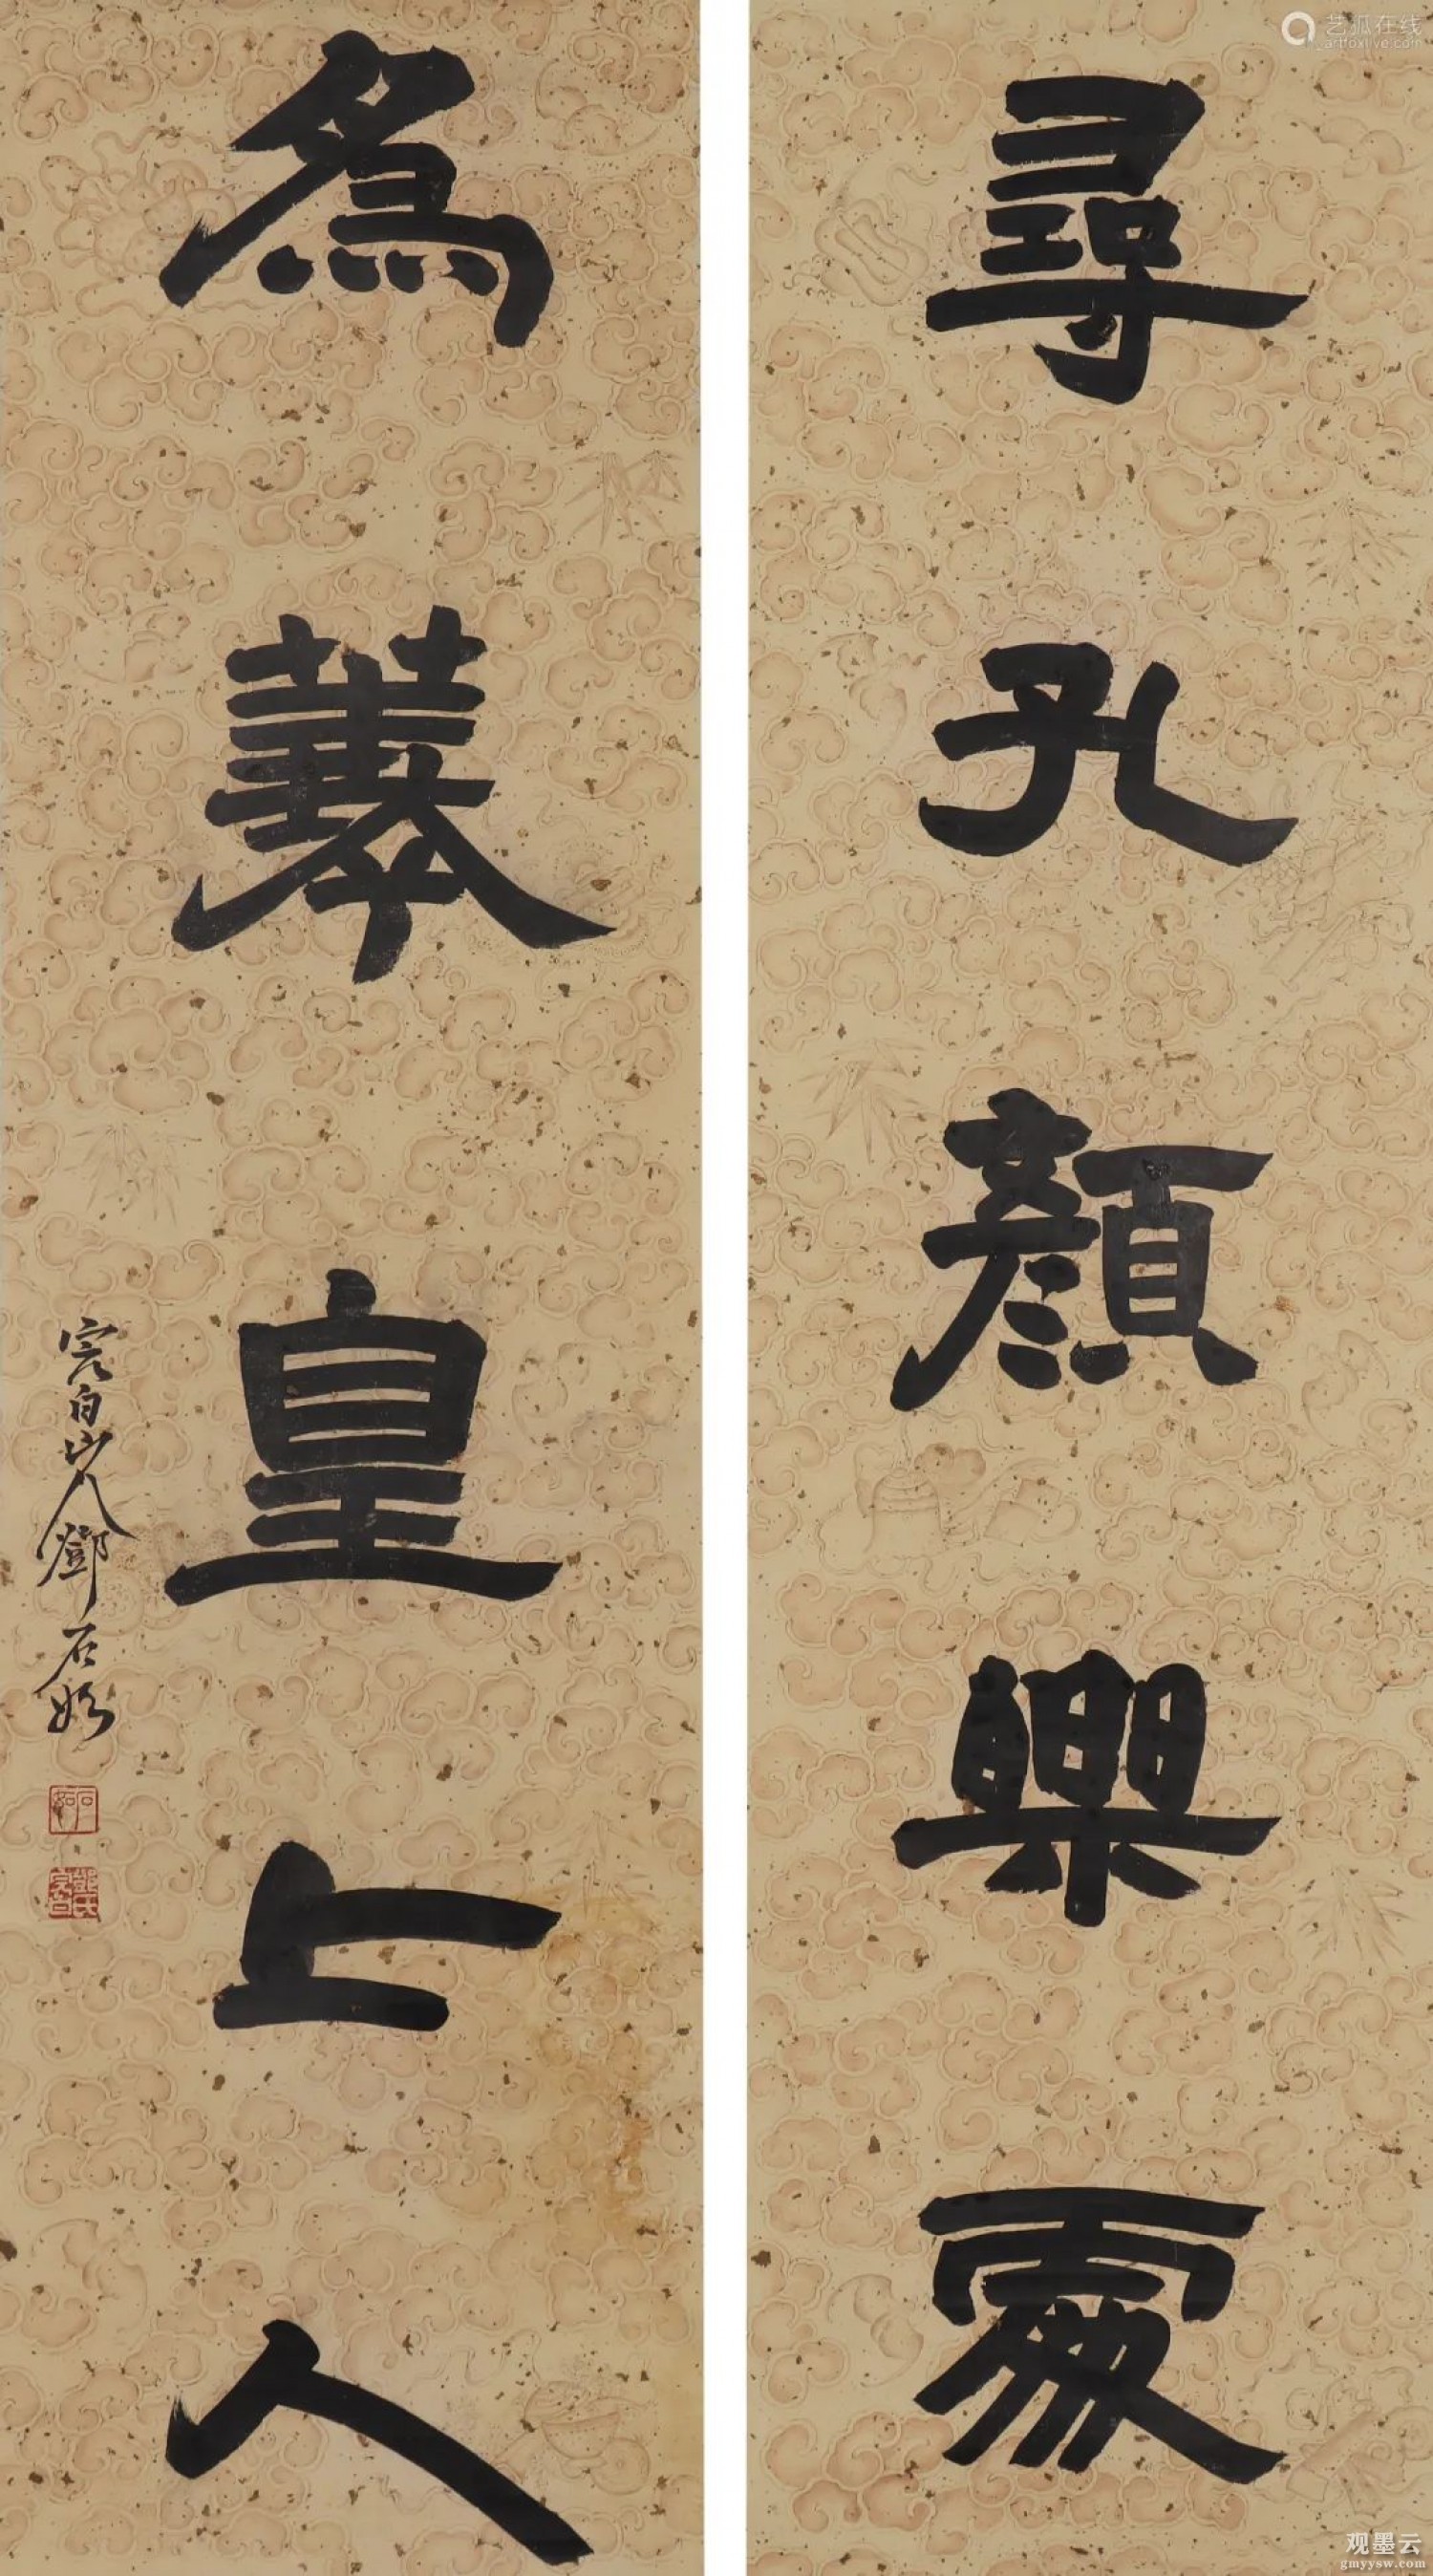 艺狐在线
artfoxlive.com
尋孔顏樂處
為羲皇上人
完白山人鄧石如
石如
观墨云
gmyysw.com